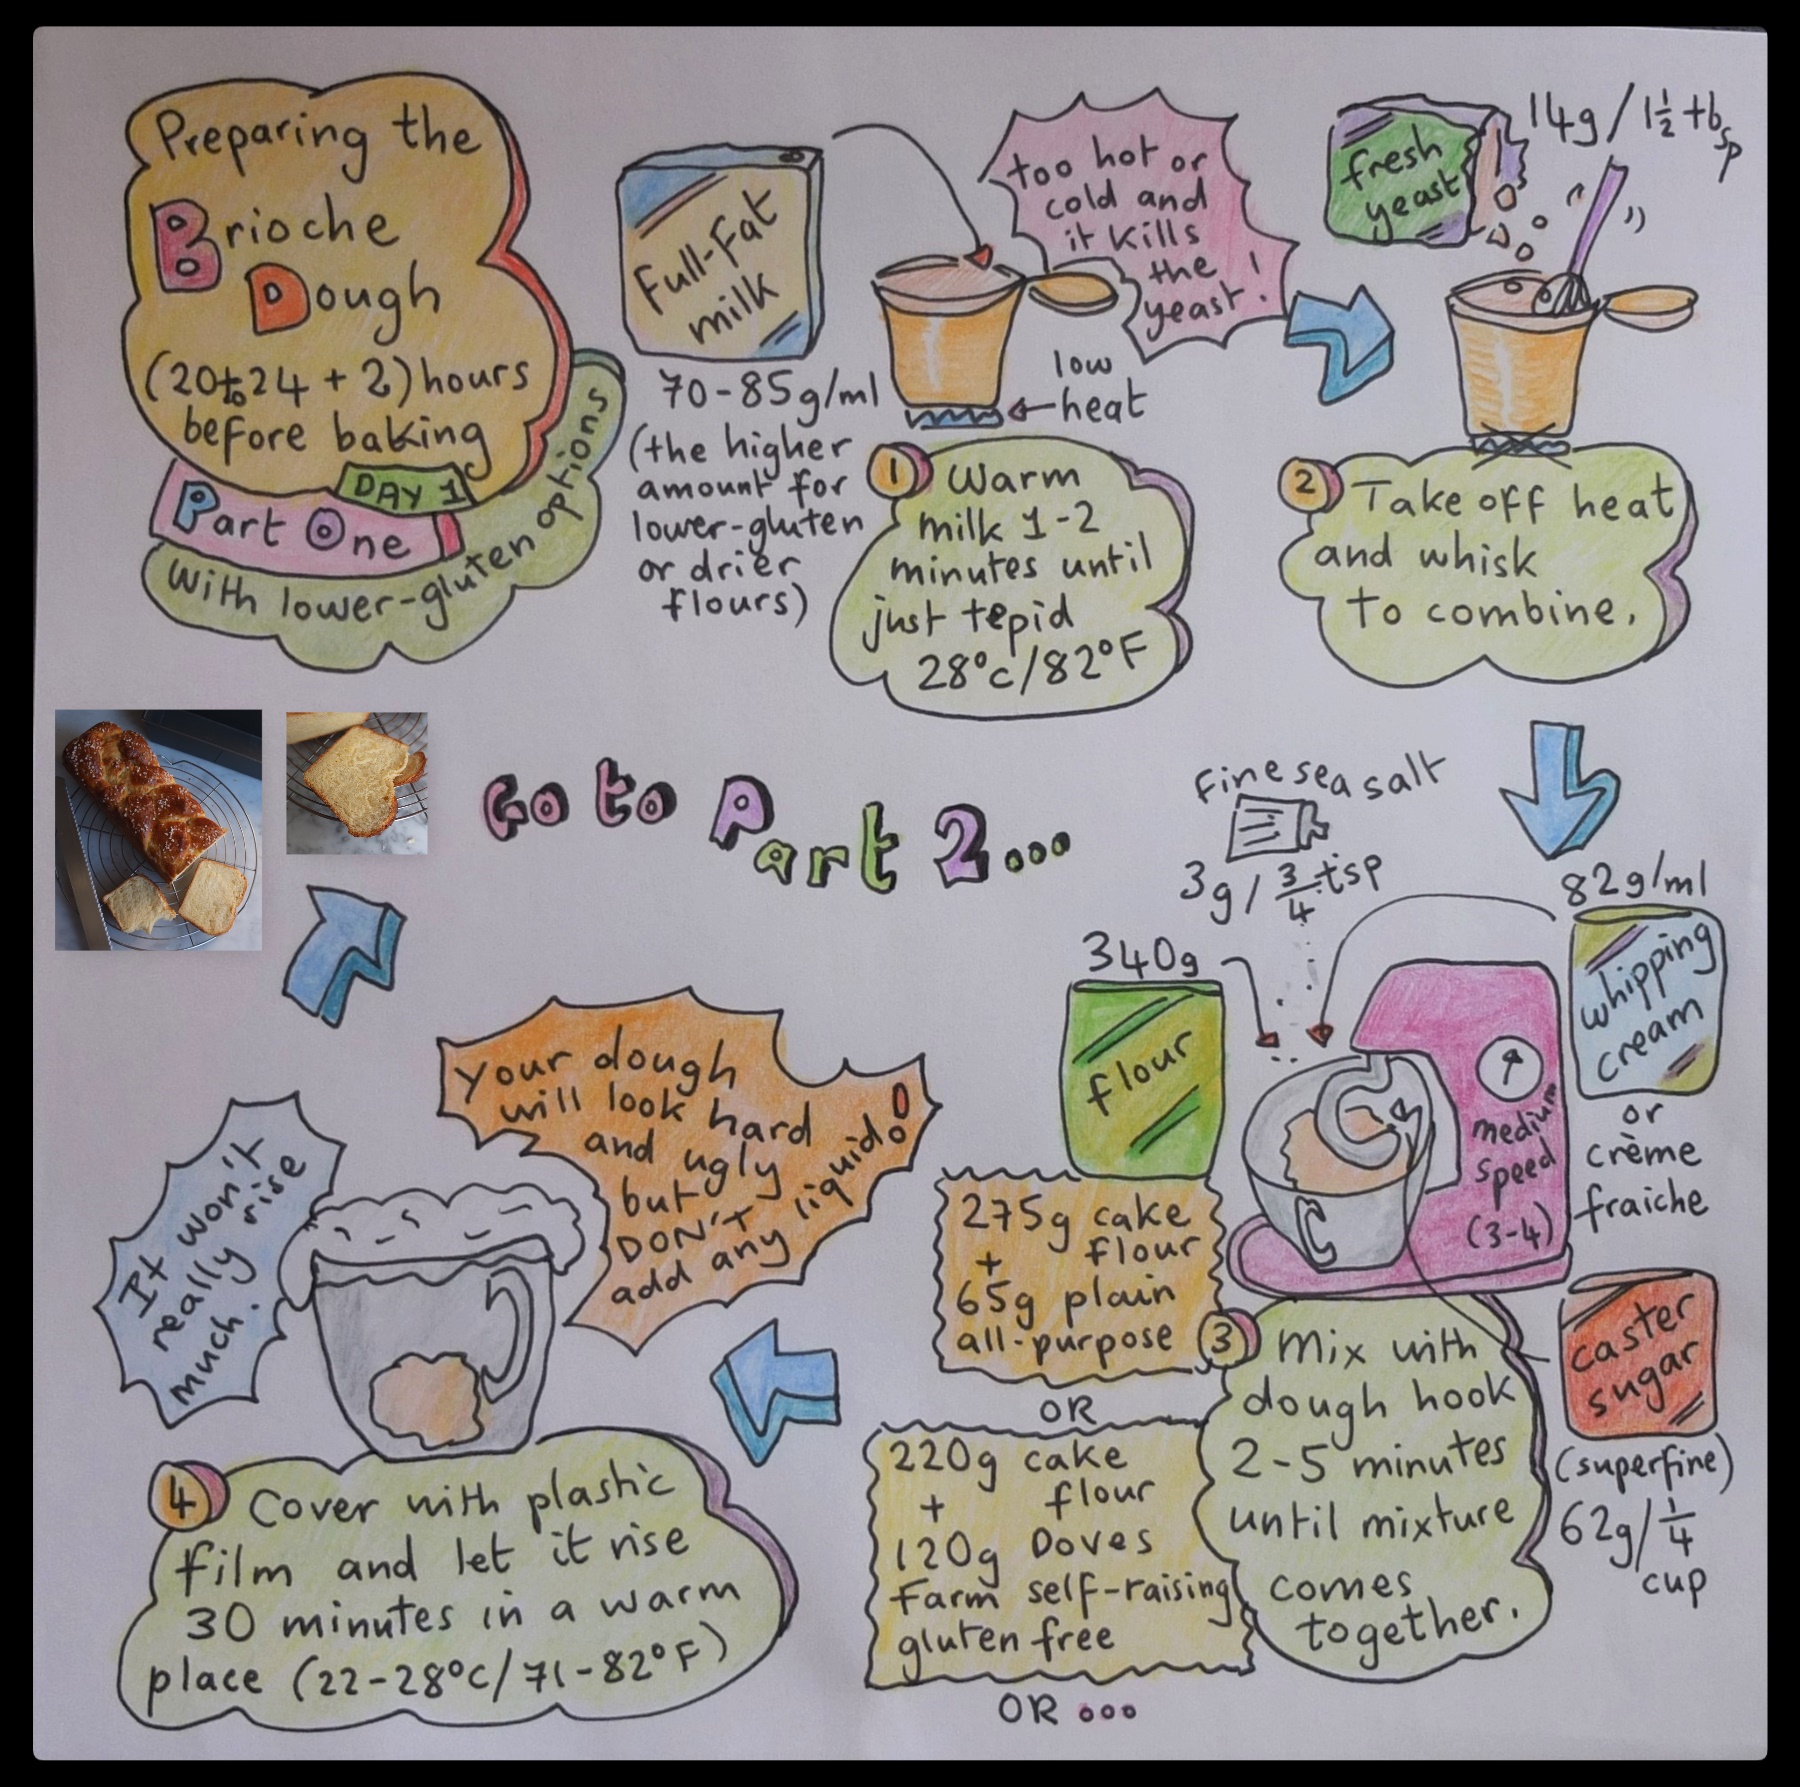 Preparing the
Brioche
Dough
(20to24 + 2) hours
before baking
DAY 1
Part One
With lower-gluten options
Full-Fat
milk
70-85g/ml
(the higher
amount for
lower-gluten
or drier
flours)
too hot or
cold and
it kills
the
yeast!
low
heat
1 Warm
milk 1-2
minutes until
just tepid
28°c/82°F
fresh
yeast
14g/1½ tbsp
2 Take off heat
and whisk
to combine.
Fine sea salt
3g/¾ tsp
82g/ml
whipping
cream
or
crème
fraiche
340g
flour
275g cake
flour
+
65g plain
all-purpose
OR
220g cake
flour
+
120g Doves
Farm self-raising
gluten free
OR ...
medium
speed
(3-4)
caster
sugar
(superfine)
62g/¼
cup
3 Mix with
dough hook
2-5 minutes
until mixture
comes
together.
Your dough
will look hard
and ugly
but
DON'T
add any liquid!
It won't
really rise
much.
4 Cover with plastic
film and let it rise
30 minutes in a warm
place (22-28°c/71-82°F)
Go to Part 2...